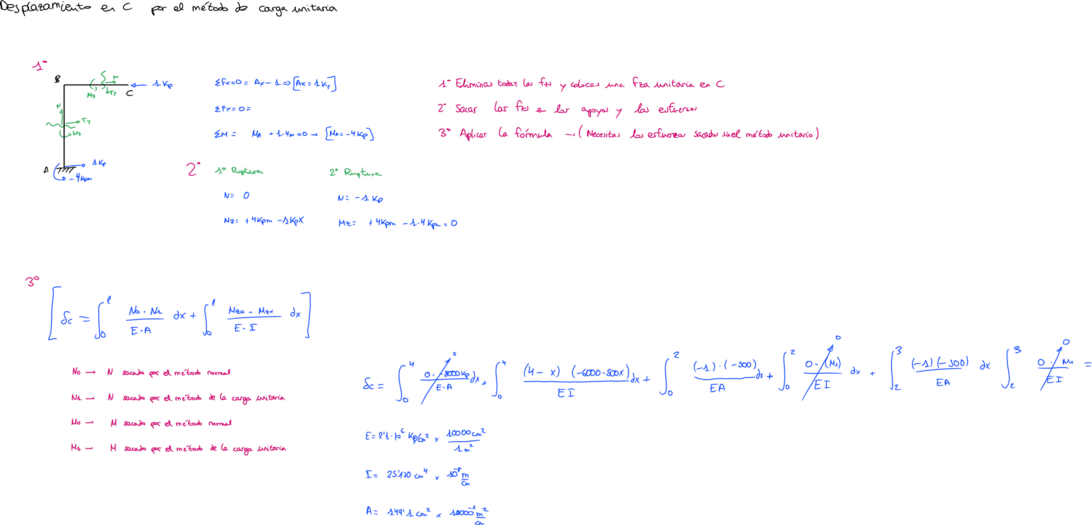 Desplazamiento en C por el método de carga unitaria
1º
B
N
Mz
C
1 Kp
N
Mz
A
1 Kp
-4Kpm
ΣFx=0 = Ax-1 ⇒ [Ax=1Kp]
ΣFy=0=
ΣM = MA + 1·4m=0 → [MA=-4Kp]
1º Eliminas todas las fzs y colocas una fza unitaria en C
2º Sacar las fzs en los apoyos y los esfuerzos
3º Aplicar la fórmula → (Necesitas los esfuerzos sacados en el método unitario)
2º
1º Ruptura
N= 0
Mz= +4Kpm -1KpX
2º Ruptura
N= -1Kp
Mz= +4Kpm -1·4Kpm = 0
3º
[δc = ∫₀^l (N0·N1)/(E·A) dx + ∫₀^l (Mz0-Mz1)/(E·I) dx]
N0 → N sacado por el método normal
N1 → N sacado por el método de la carga unitaria
M0 → M sacado por el método normal
M1 → M sacado por el método de la carga unitaria
δc = ∫₀^4 (0·-3000Kp)/(E·A) dx + ∫₀^4 ((4-x)(-6000-500x))/(EI) dx + ∫₀^2 ((-1)·(-500))/(EA) dx + ∫₀^2 (0·(M1))/(EI) dx + ∫₂^3 ((-1)(-500))/(EA) dx ∫₂^3 (0·M1)/(EI) =
0
0
0
E= 2'1·10⁶ Kp/cm² x 10000cm²/1m²
I= 25'170 cm⁴ x 10⁻⁸ m/cm
A= 149'1 cm² x 10000⁻¹ m²/cm